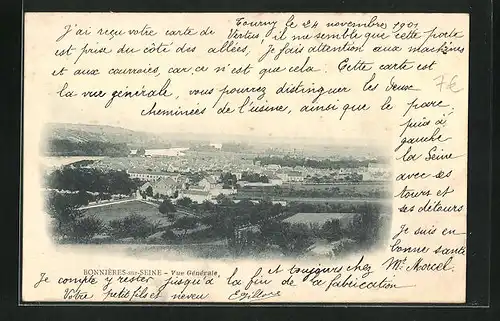 Tourny le 24 novembre 1901
J'ai reçu votre carte de Vertus, il me semble que cette porte
est prise du côté des allées, Je fais attention aux machines
et aux courroies, car ce n'est que cela. Cette carte est
la vue générale, vous pourrez distinguer les deux
cheminées de l'usine, ainsi que le parc,
7€
puis à
gauche
la Seine
avec ses
tours et
ses détours
Je suis en
bonne santé
BONNIÈRES-sur-SEINE - Vue Générale,
et toujours chez Mr Marcel.
Je compte y rester jusqu'à la fin de la fabrication
Votre petit fils et neveu